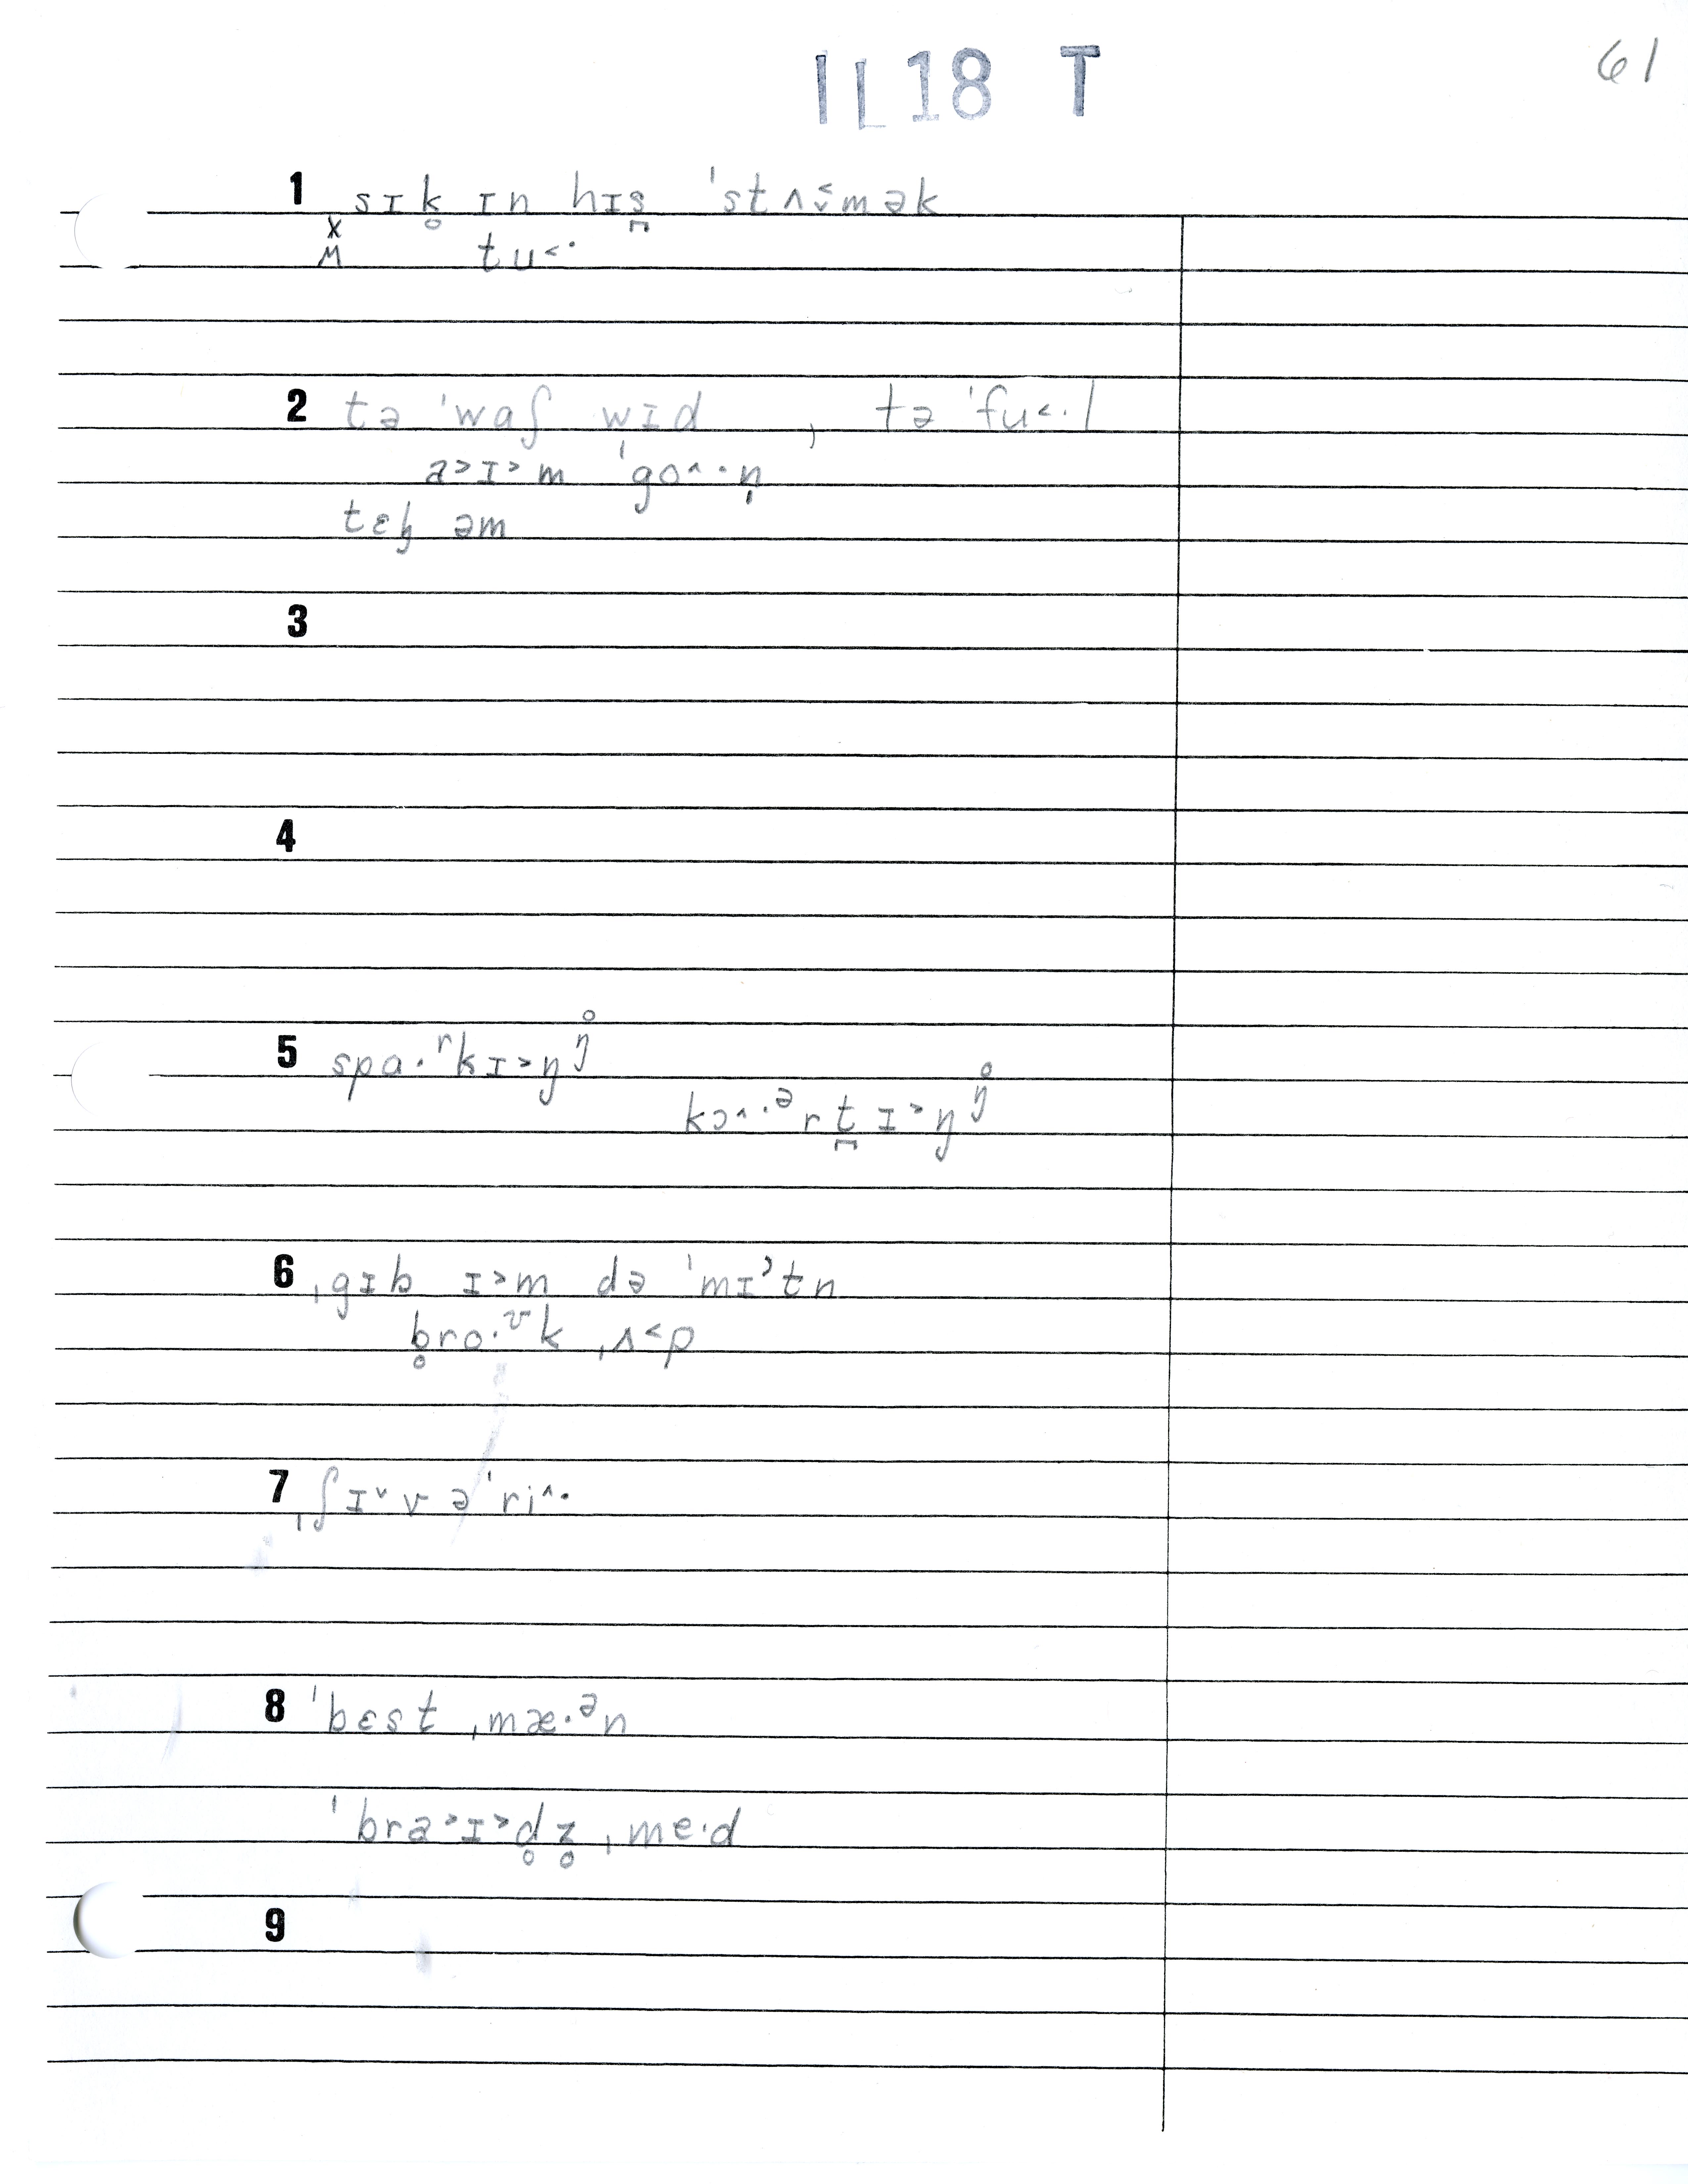 IL18 T
61
1 sɪk̥ ɪn hɪs̪ ˈstʌ˂̬mək
x
M tu˂·
2 tə ˈwaʃ wɪd , tə ˈfu˂·l
a˃ɪ˃m ˈgo˄·n̩
tɛɮ əm
3
4
5 spɑ·ʳkɪ˃ŋᵑ̊
kɔ˄·ᵊrt̪ɪ˃ŋᵑ̊
6 ˌgɪb ɪ˃m də ˈmɪ˃tn
b̥ro·ᶷk ˌʌ˂p
7 ˌʃɪ˅v əˈri˄·
8 ˈbɛst ˌmæ·ᵊn
ˈbra˃ɪ˃d̥z̥ ˌme·d
9